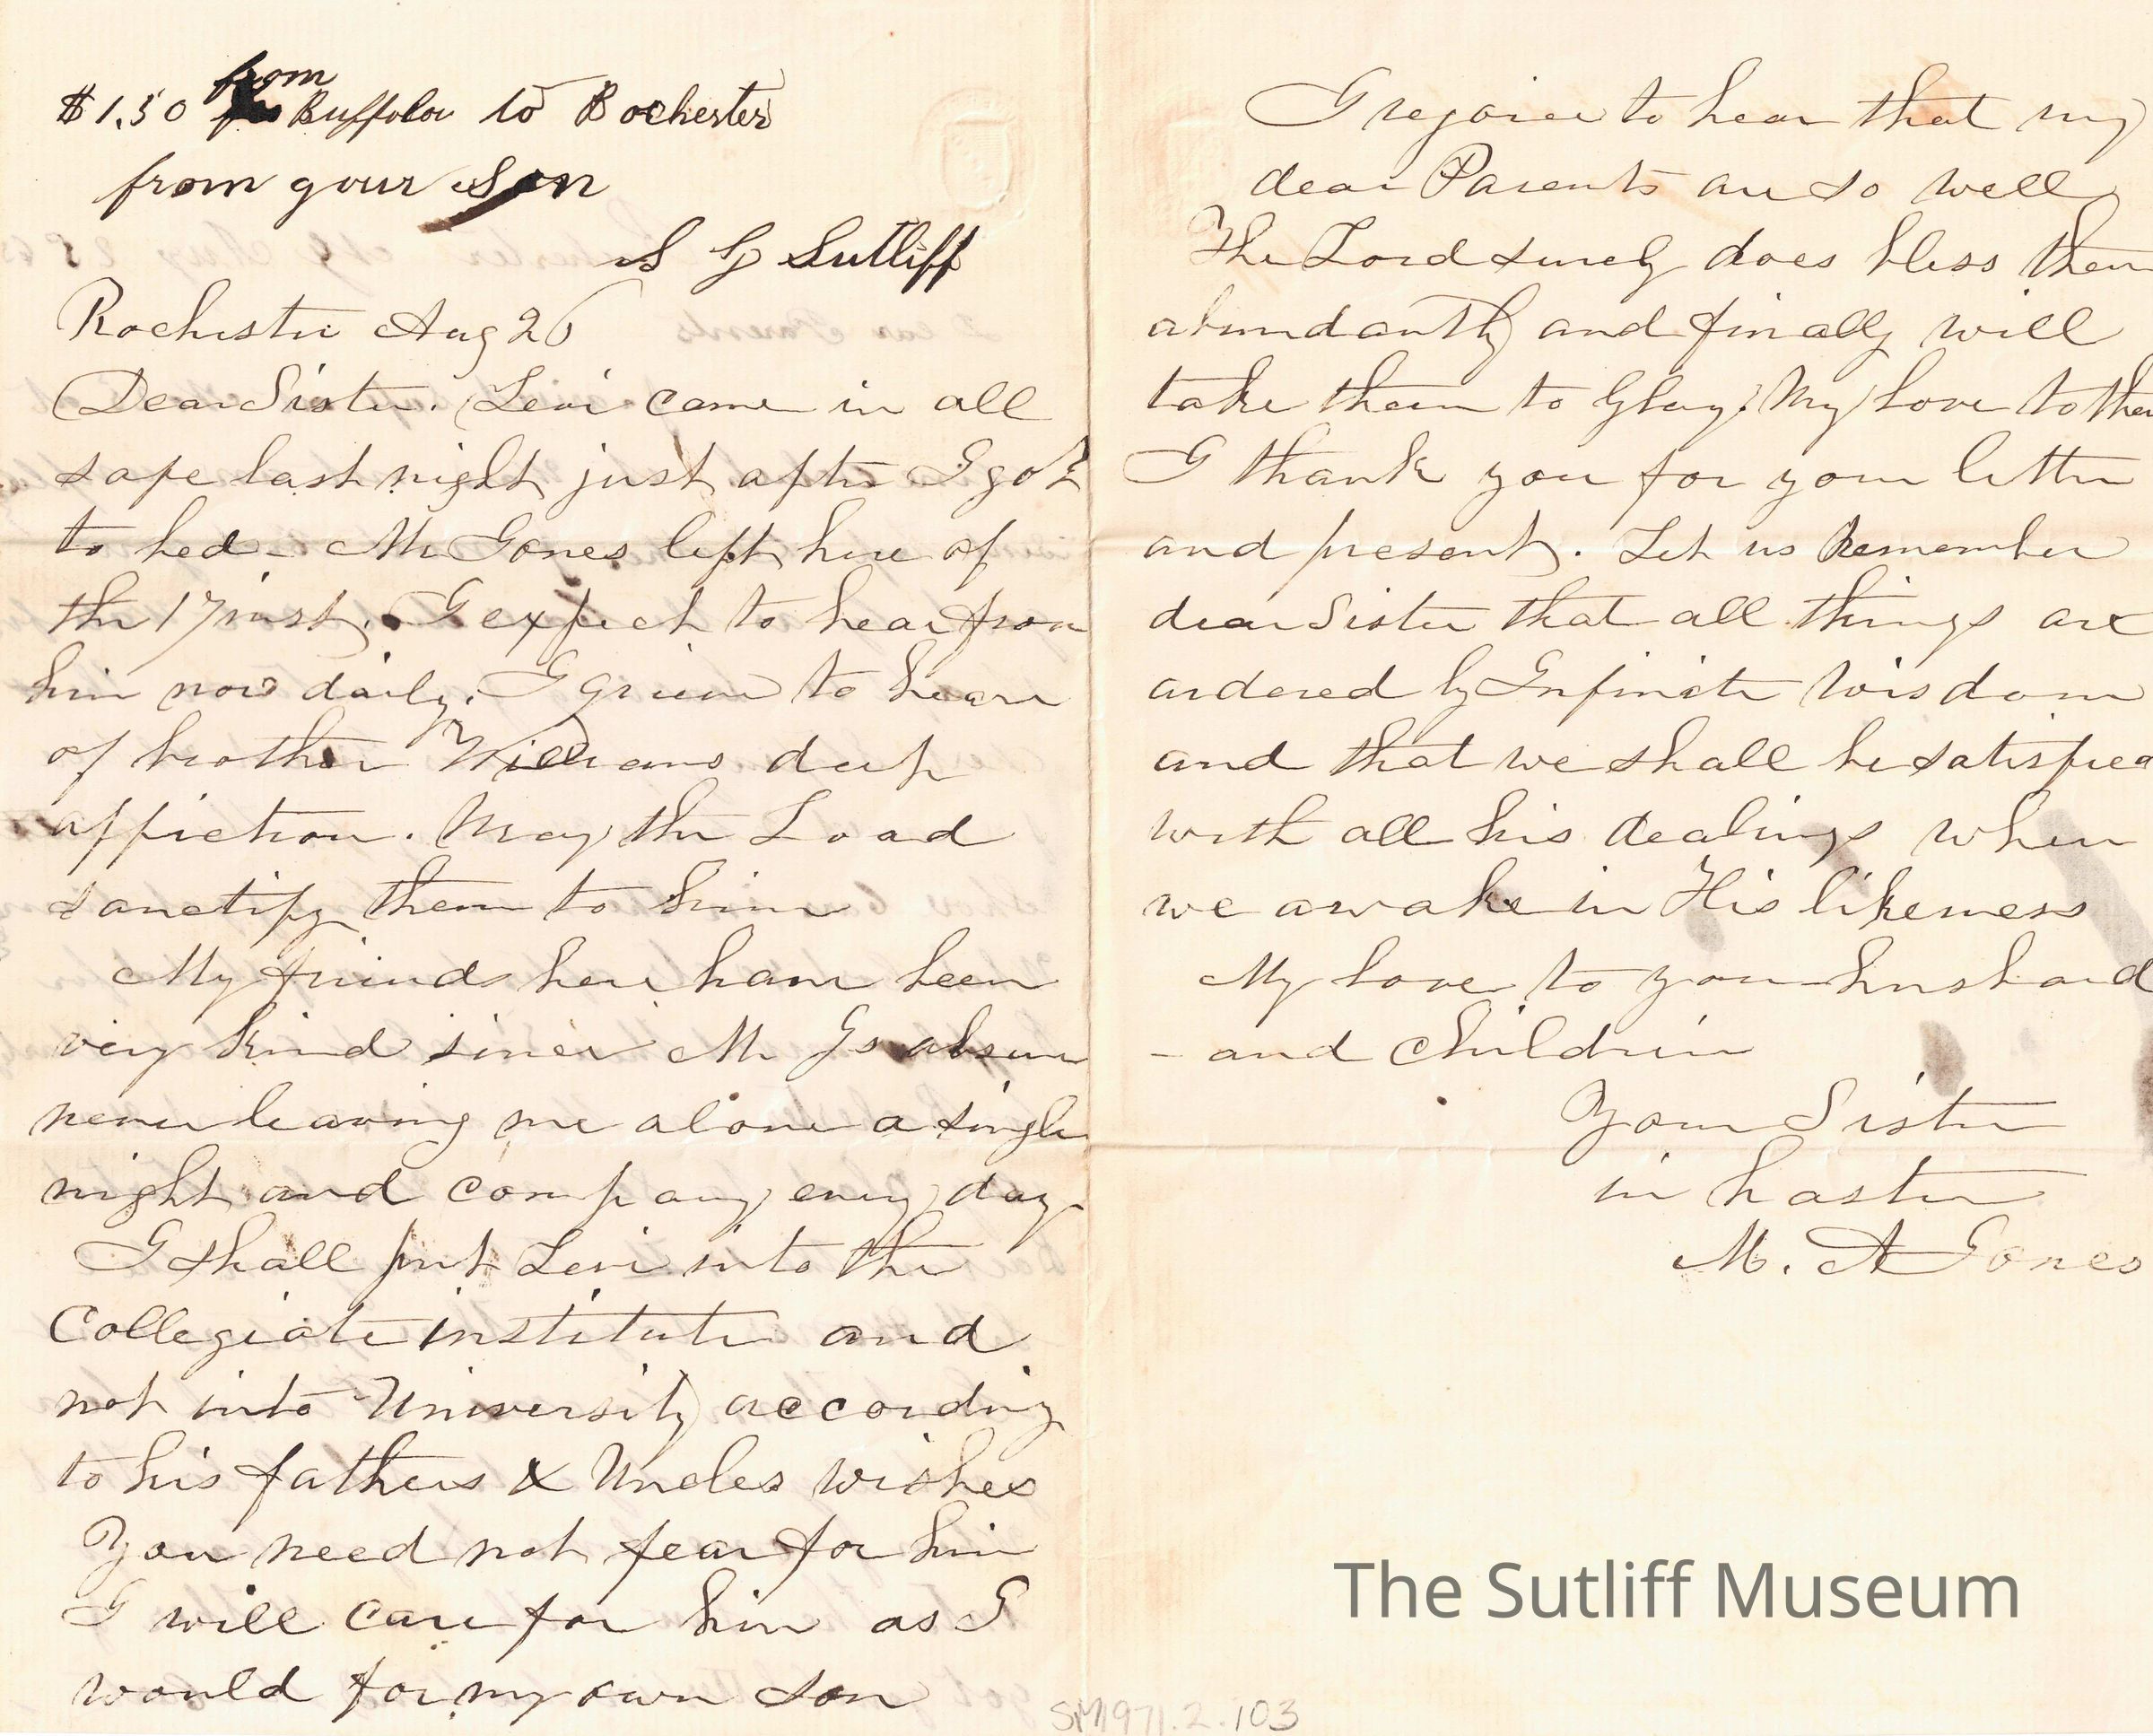 $1.50 from Buffolow to Rochester
from your Son
S G Sutliff
Rochester Aug 26
Dear Sister. Levi came in all
safe last night just after I got
to bed - Mr Jones left here of
the 17 inst. I expect to hear from
him now daily. I grieve to hear
of brother Williams deep
affiction. May the Load
sanctify them to him
My friends here have been
very kind since Mr Js absence
never leaving me alone a single
night and company every day
I shall put Levi into the
Collegiate institute and
not into University according
to his fathers & Uncles wishes
You need not fear for him
I will care for him as I
would for my own son
I rejoice to hear that my
dear Parents are so well
The Lord surely does bless them
abundantly and finally will
take them to Glory. My love to them
I thank you for your letter
and present. Let us Remember
dear Sister that all things are
ordered by Infinite wisdom
and that we shall be satisfied
with all his dealings when
we awake in His likeness
My love to your husband
- and Children
Your Sister
in haste
M. A Jones
The Sutliff Museum
SM1971.2.103